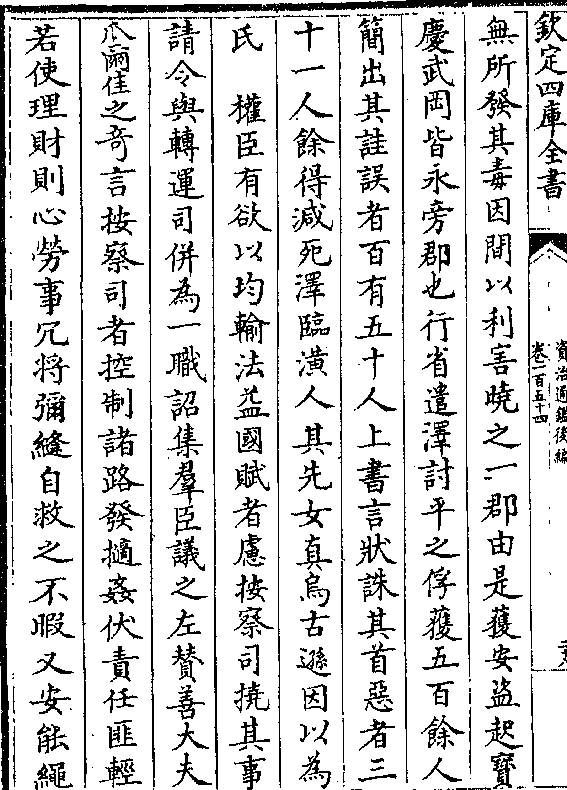 欽定四庫全書
資治通鑑後編
卷一百五十四
無所發其毒因間以利害曉之一郡由是獲安盗起寶
慶武岡皆永旁郡也行省遣澤討平之俘獲五百餘人
簡出其詿誤者百有五十人上書言狀誅其首惡者三
十一人餘得減死澤臨潢人其先女真烏古遜因以為
氏　權臣有欲以均輸法益國賦者慮按察司撓其事
請令與轉運司併為一職詔集羣臣議之左賛善大夫
瓜爾佳之竒言按察司者控制諸路發擿姦伏責任匪輕
若使理財則心勞事冗將彌縫自救之不暇又安能繩